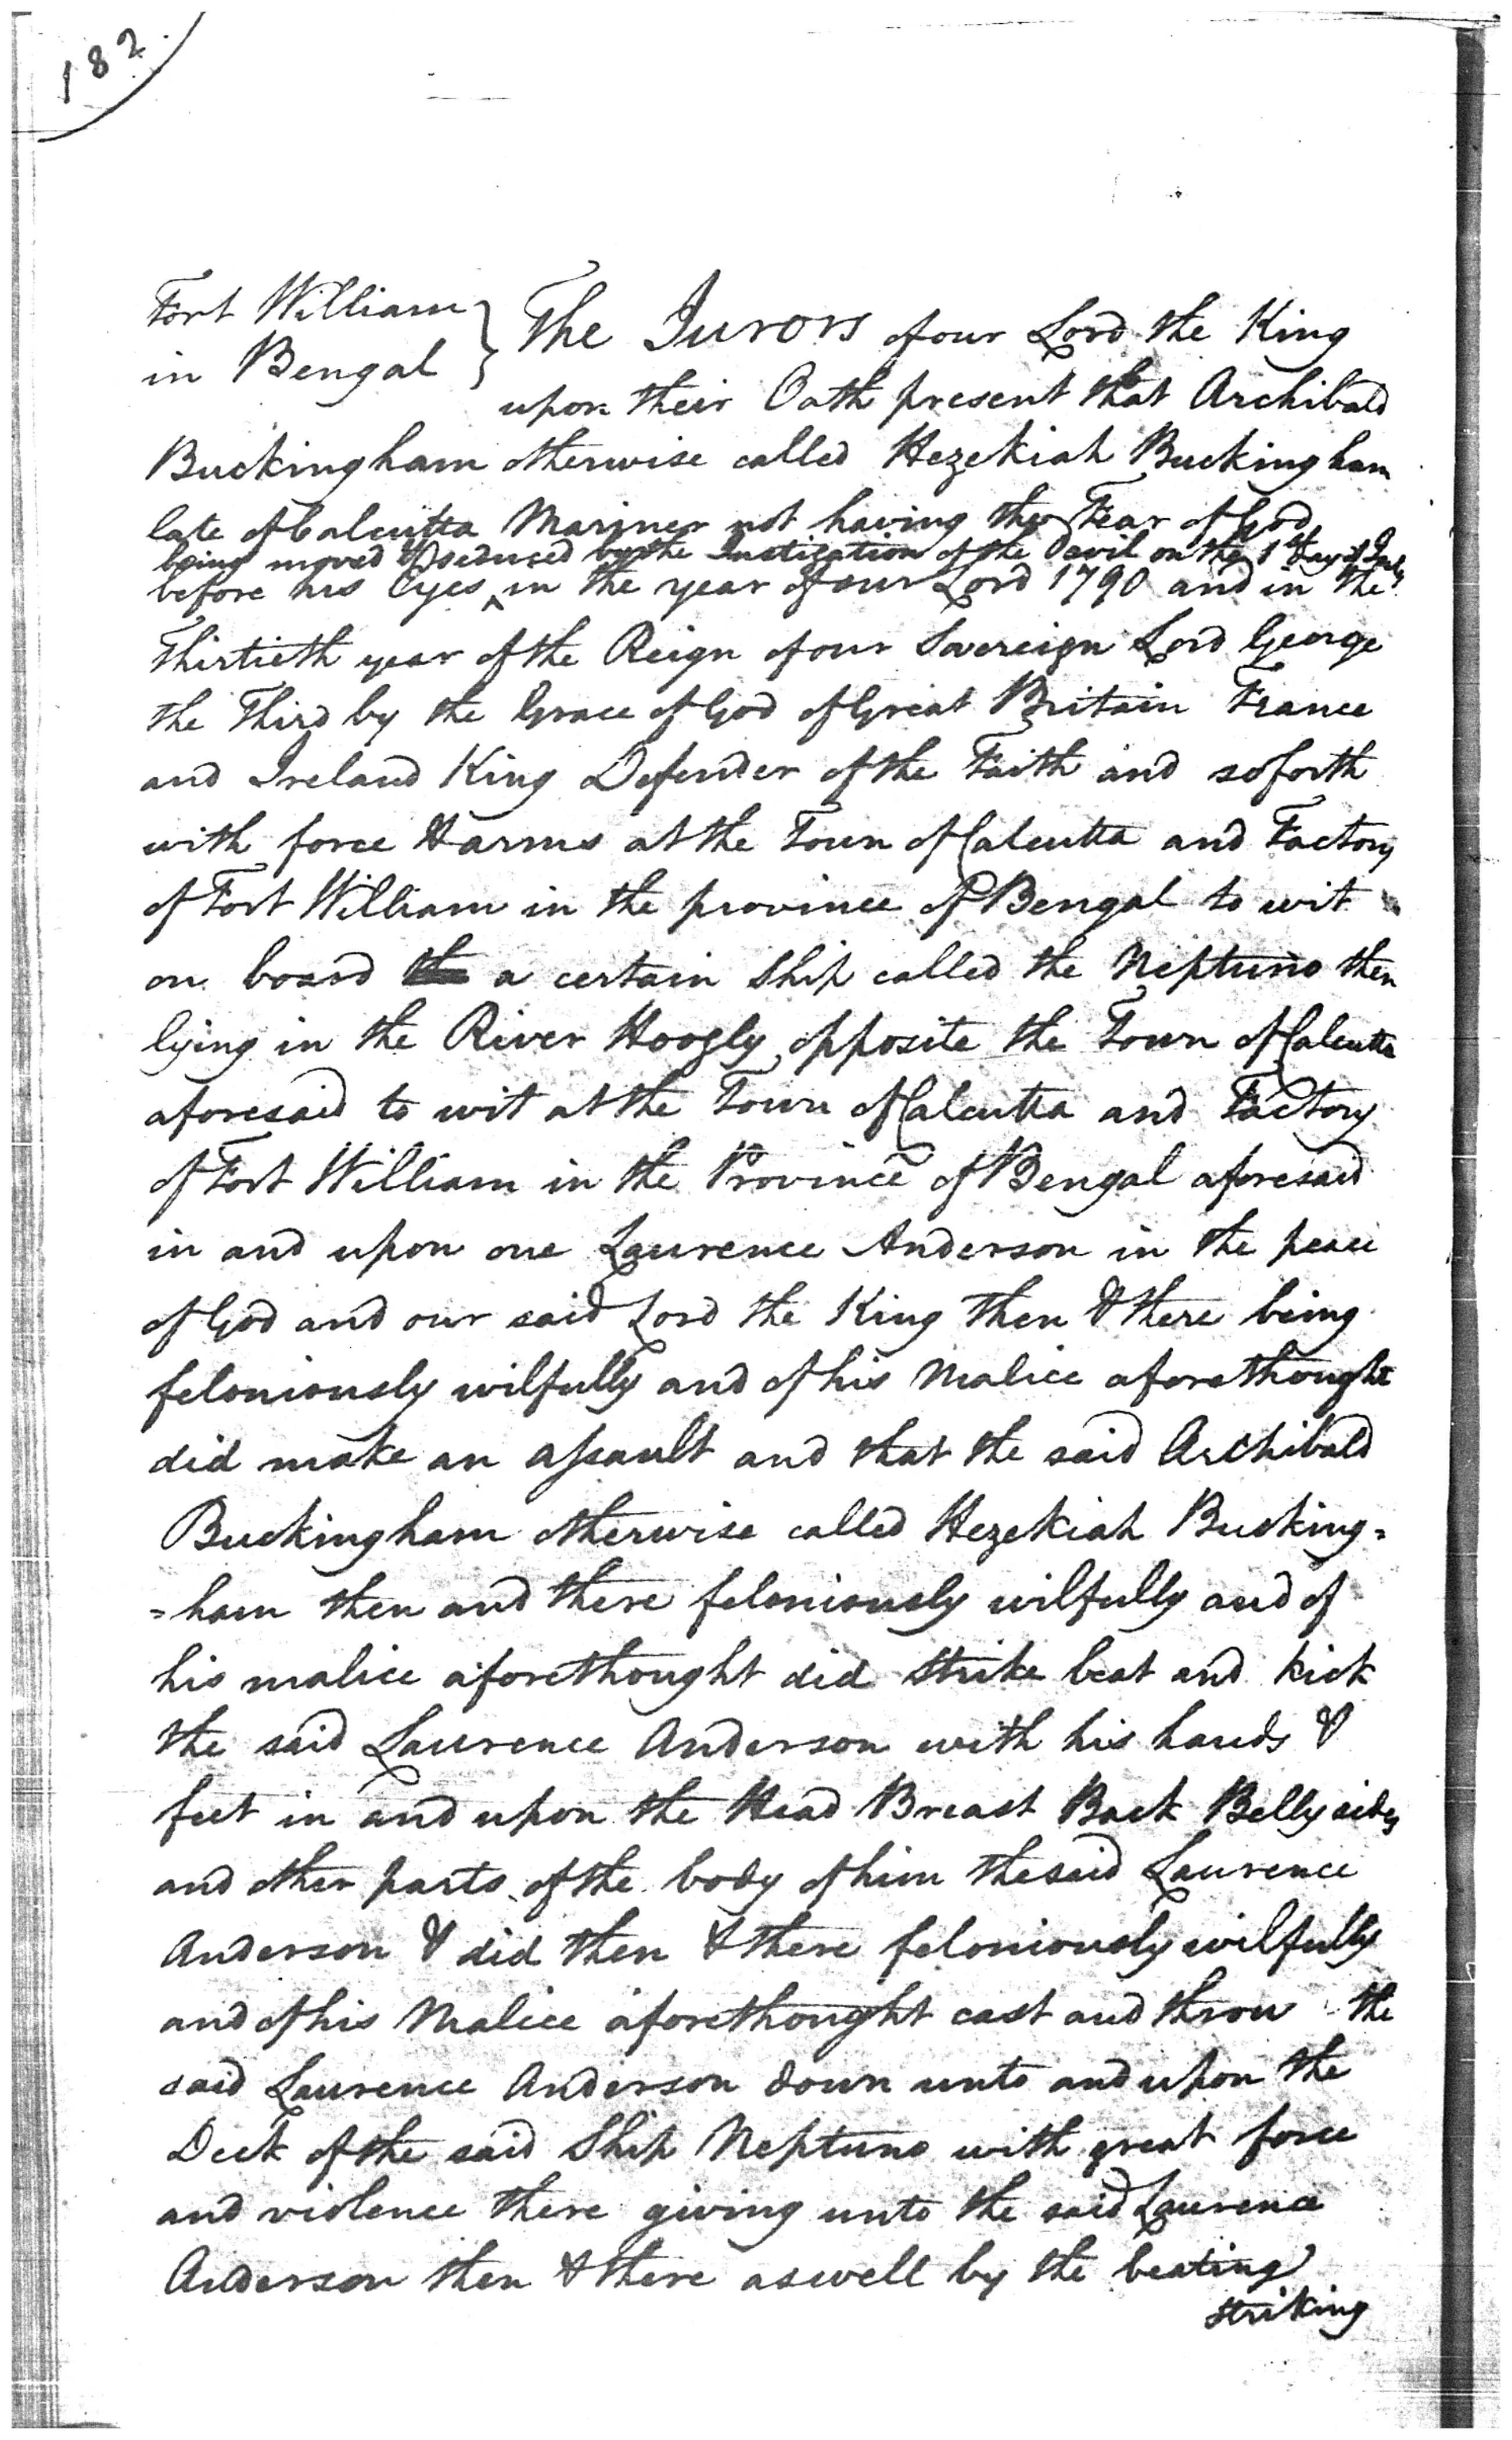 182.
Fort William
in Bengal
The Jurors of our Lord the King
upon their Oath present that Archibald
Buckingham otherwise called Hezekiah Buckingham
late of Calcutta Mariner not having the Fear of God
being moved & seduced by the Instigation of the Devil on the 1st day of July
before his Eyes ^ in the year of our Lord 1790 and in the
Thirtieth year of the Reign of our Sovereign Lord George
the Third by the Grace of God of Great Britain France
and Ireland King Defender of the Faith and soforth
with force & arms at the Town of Calcutta and Factory
of Fort William in the province of Bengal to wit
on board a certain Ship called the Neptuno then
lying in the River Hoogly opposite the Town of Calcutta
aforesaid to wit at the Town of Calcutta and Factory
of Fort William in the Province of Bengal aforesaid
in and upon one Laurence Anderson in the peace
of God and our said Lord the King then & there being
feloniously wilfully and of his Malice aforethought
did make an assault and that the said Archibald
Buckingham otherwise called Hezekiah Bucking=
=ham then and there feloniously wilfully and of
his malice aforethought did strike beat and kick
the said Laurence Anderson with his hands &
feet in and upon the Head Breast Back Belly sides
and other parts of the body of him the said Laurence
Anderson & did then & there feloniously wilfully
and of his Malice aforethought cast and throw the
said Laurence Anderson down unto and upon the
Deck of the said Ship Neptuno with great force
and violence there giving unto the said Laurence
Anderson then & there aswell by the beating
striking